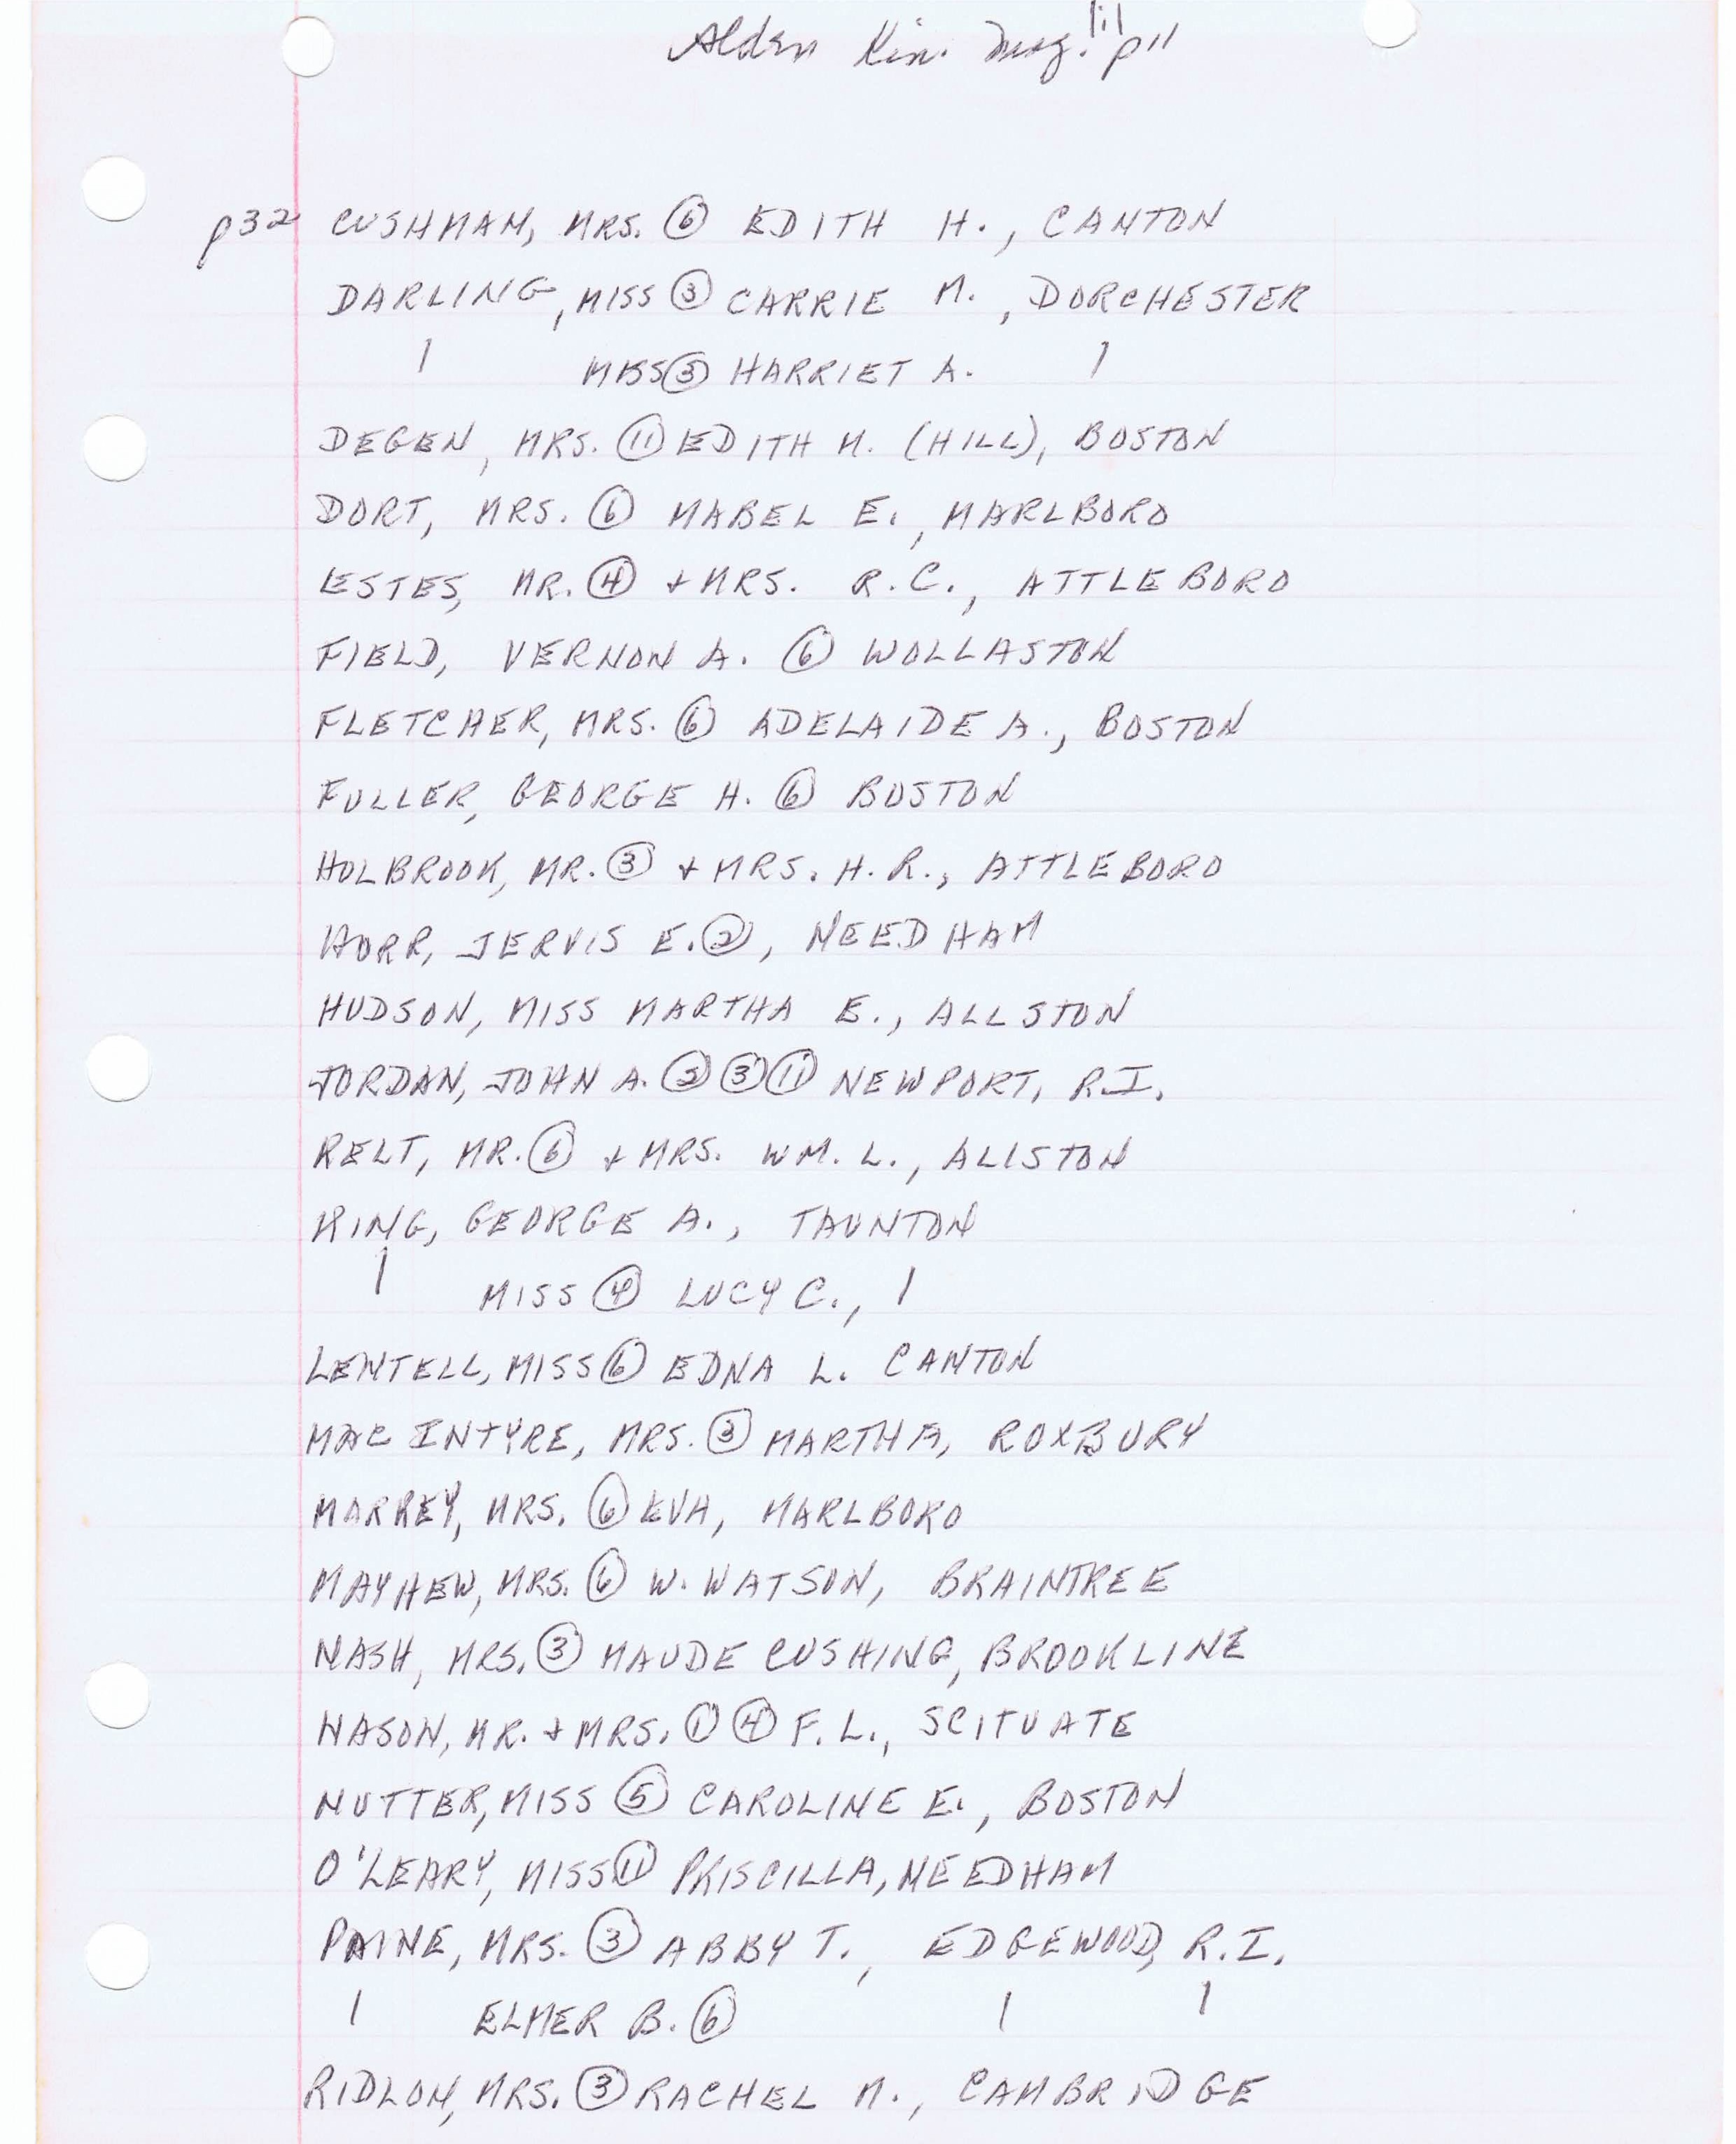 Alden Kin. Mag. p11
p32 CUSHMAN, MRS. ⑥ EDITH H., CANTON
DARLING, MISS ③ CARRIE M., DORCHESTER
| MISS ③ HARRIET A. |
DEGEN, MRS. ⑪ EDITH M. (HILL), BOSTON
DORT, MRS. ⑥ MABEL E., MARLBORO
ESTES, MR. ④ + MRS. R.C., ATTLEBORO
FIELD, VERNON A. ⑥ WOLLASTON
FLETCHER, MRS. ⑥ ADELAIDE A., BOSTON
FULLER, GEORGE H. ⑥ BOSTON
HOLBROOK, MR. ③ + MRS. H.R., ATTLEBORO
HORR, JERVIS E. ②, NEEDHAM
HUDSON, MISS MARTHA E., ALLSTON
JORDAN, JOHN A. ② ③ ⑪ NEWPORT, R.I.
KELT, MR. ⑥ + MRS. WM. L., ALLSTON
KING, GEORGE A., TAUNTON
| MISS ④ LUCY C., |
LENTELL, MISS ⑥ EDNA L. CANTON
MAC INTYRE, MRS. ③ MARTHA, ROXBURY
MRS. ⑥ EVA, MARLBORO
MAYHEW, MRS. ⑥ W. WATSON, BRAINTREE
NASH, MRS. ③ MAUDE CUSHING, BROOKLINE
NASON, MR. + MRS. ① ④ F.L., SCITUATE
NUTTER, MISS ⑤ CAROLINE E., BOSTON
O'LEARY, MISS ⑪ PRISCILLA, NEEDHAM
PAINE, MRS. ③ ABBY T., EDGEWOOD, R.I.
| ELMER B. ⑥ | |
RIDLON, MRS. ③ RACHEL M., CAMBRIDGE